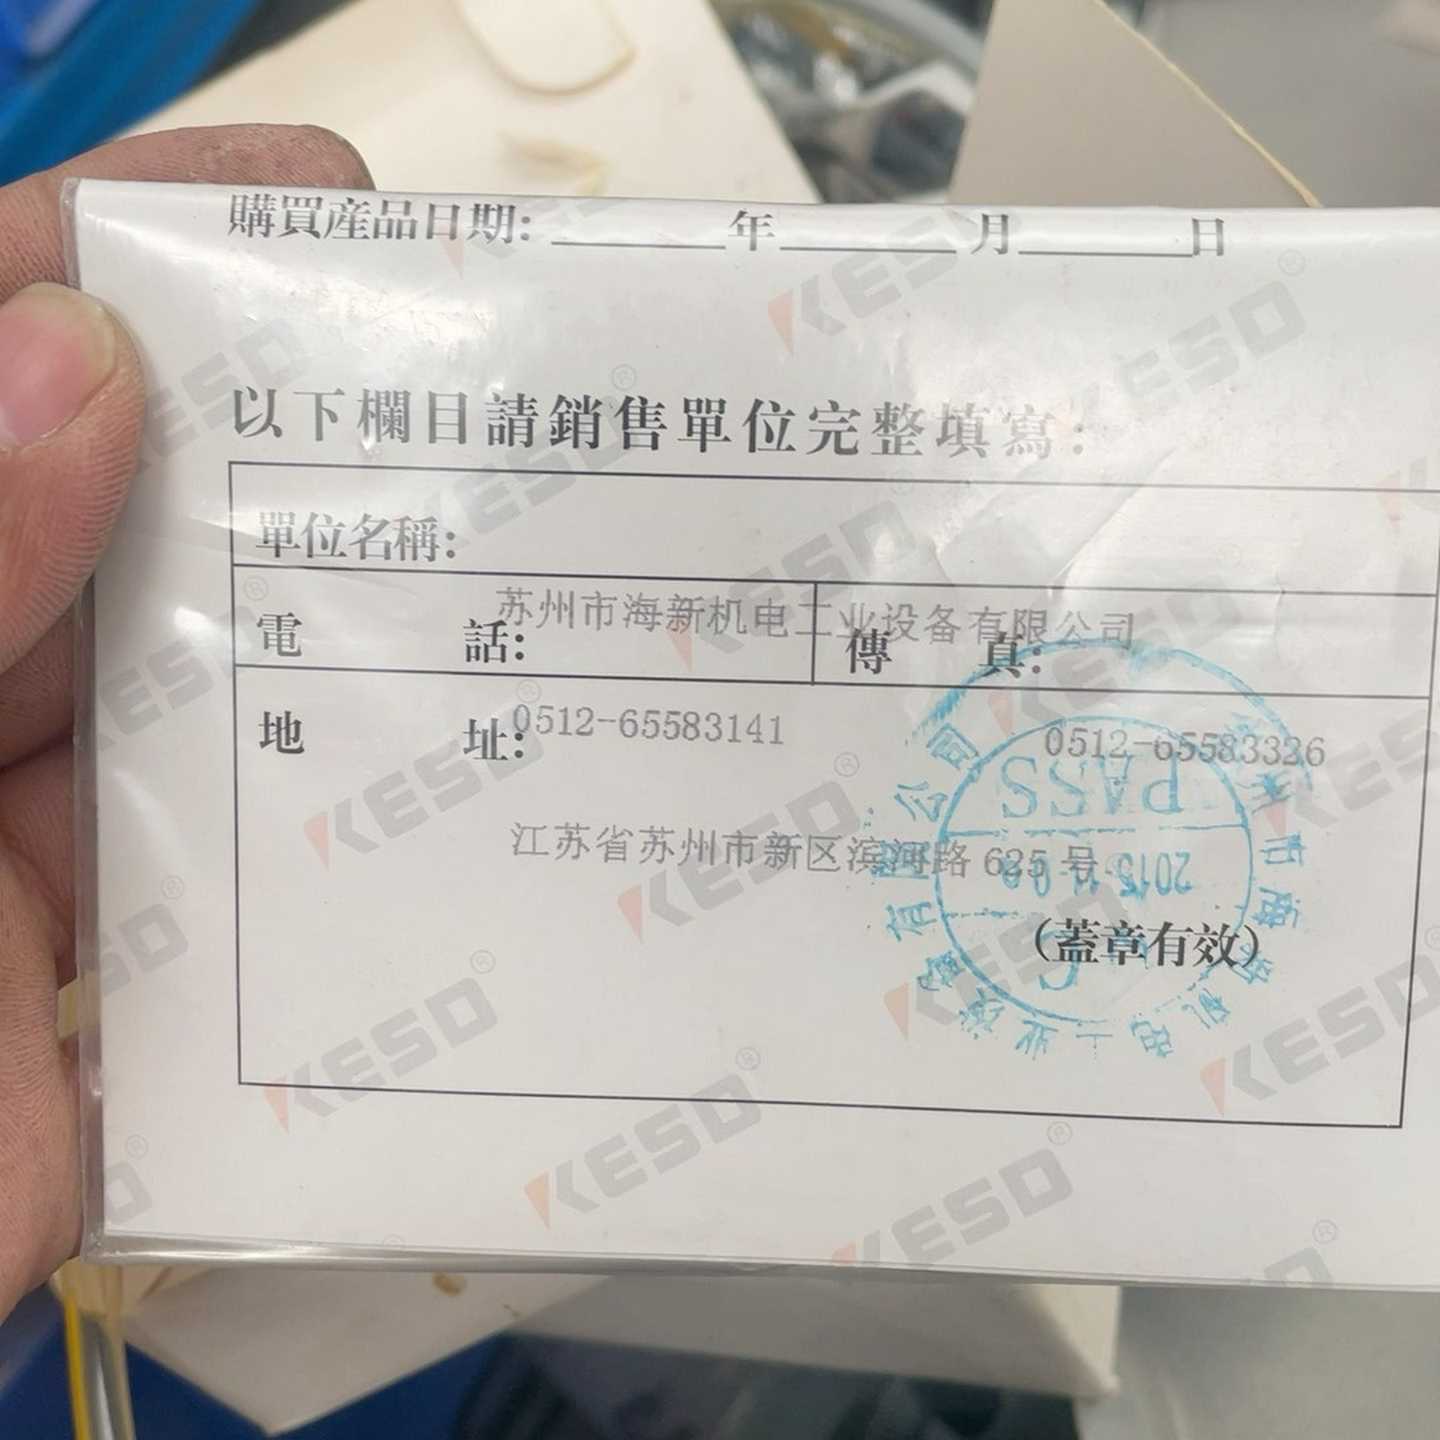 購買産品日期：______年______月______日
以下欄目請銷售單位完整填寫：
單位名稱：
苏州市海新机电工业设备有限公司
電 話： 傳 真：
0512-65583141 0512-65583326
地 址：
江苏省苏州市新区滨河路 625 号
（蓋章有效）
PASS
2015
有限公司
KESD